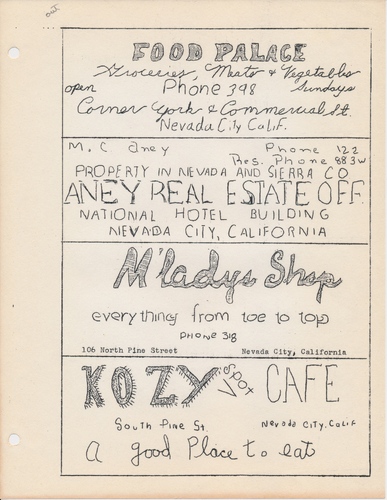 out
FOOD PALACE
Groceries, Meats & Vegetables
open Phone 398 Sundays
Corner York & Commercial St.
Nevada City Calif.
M. C Aney Phone 122
Res. Phone 883W
PROPERTY IN NEVADA AND SIERRA CO
ANEY REAL ESTATE OFF
NATIONAL HOTEL BUILDING
NEVADA CITY, CALIFORNIA
M'ladys Shop
everything from toe to top
PHONE 318
106 North Pine Street Nevada City, California
KOZY Spot CAFE
South Pine St. Nevada City. Calif
a good Place to eat